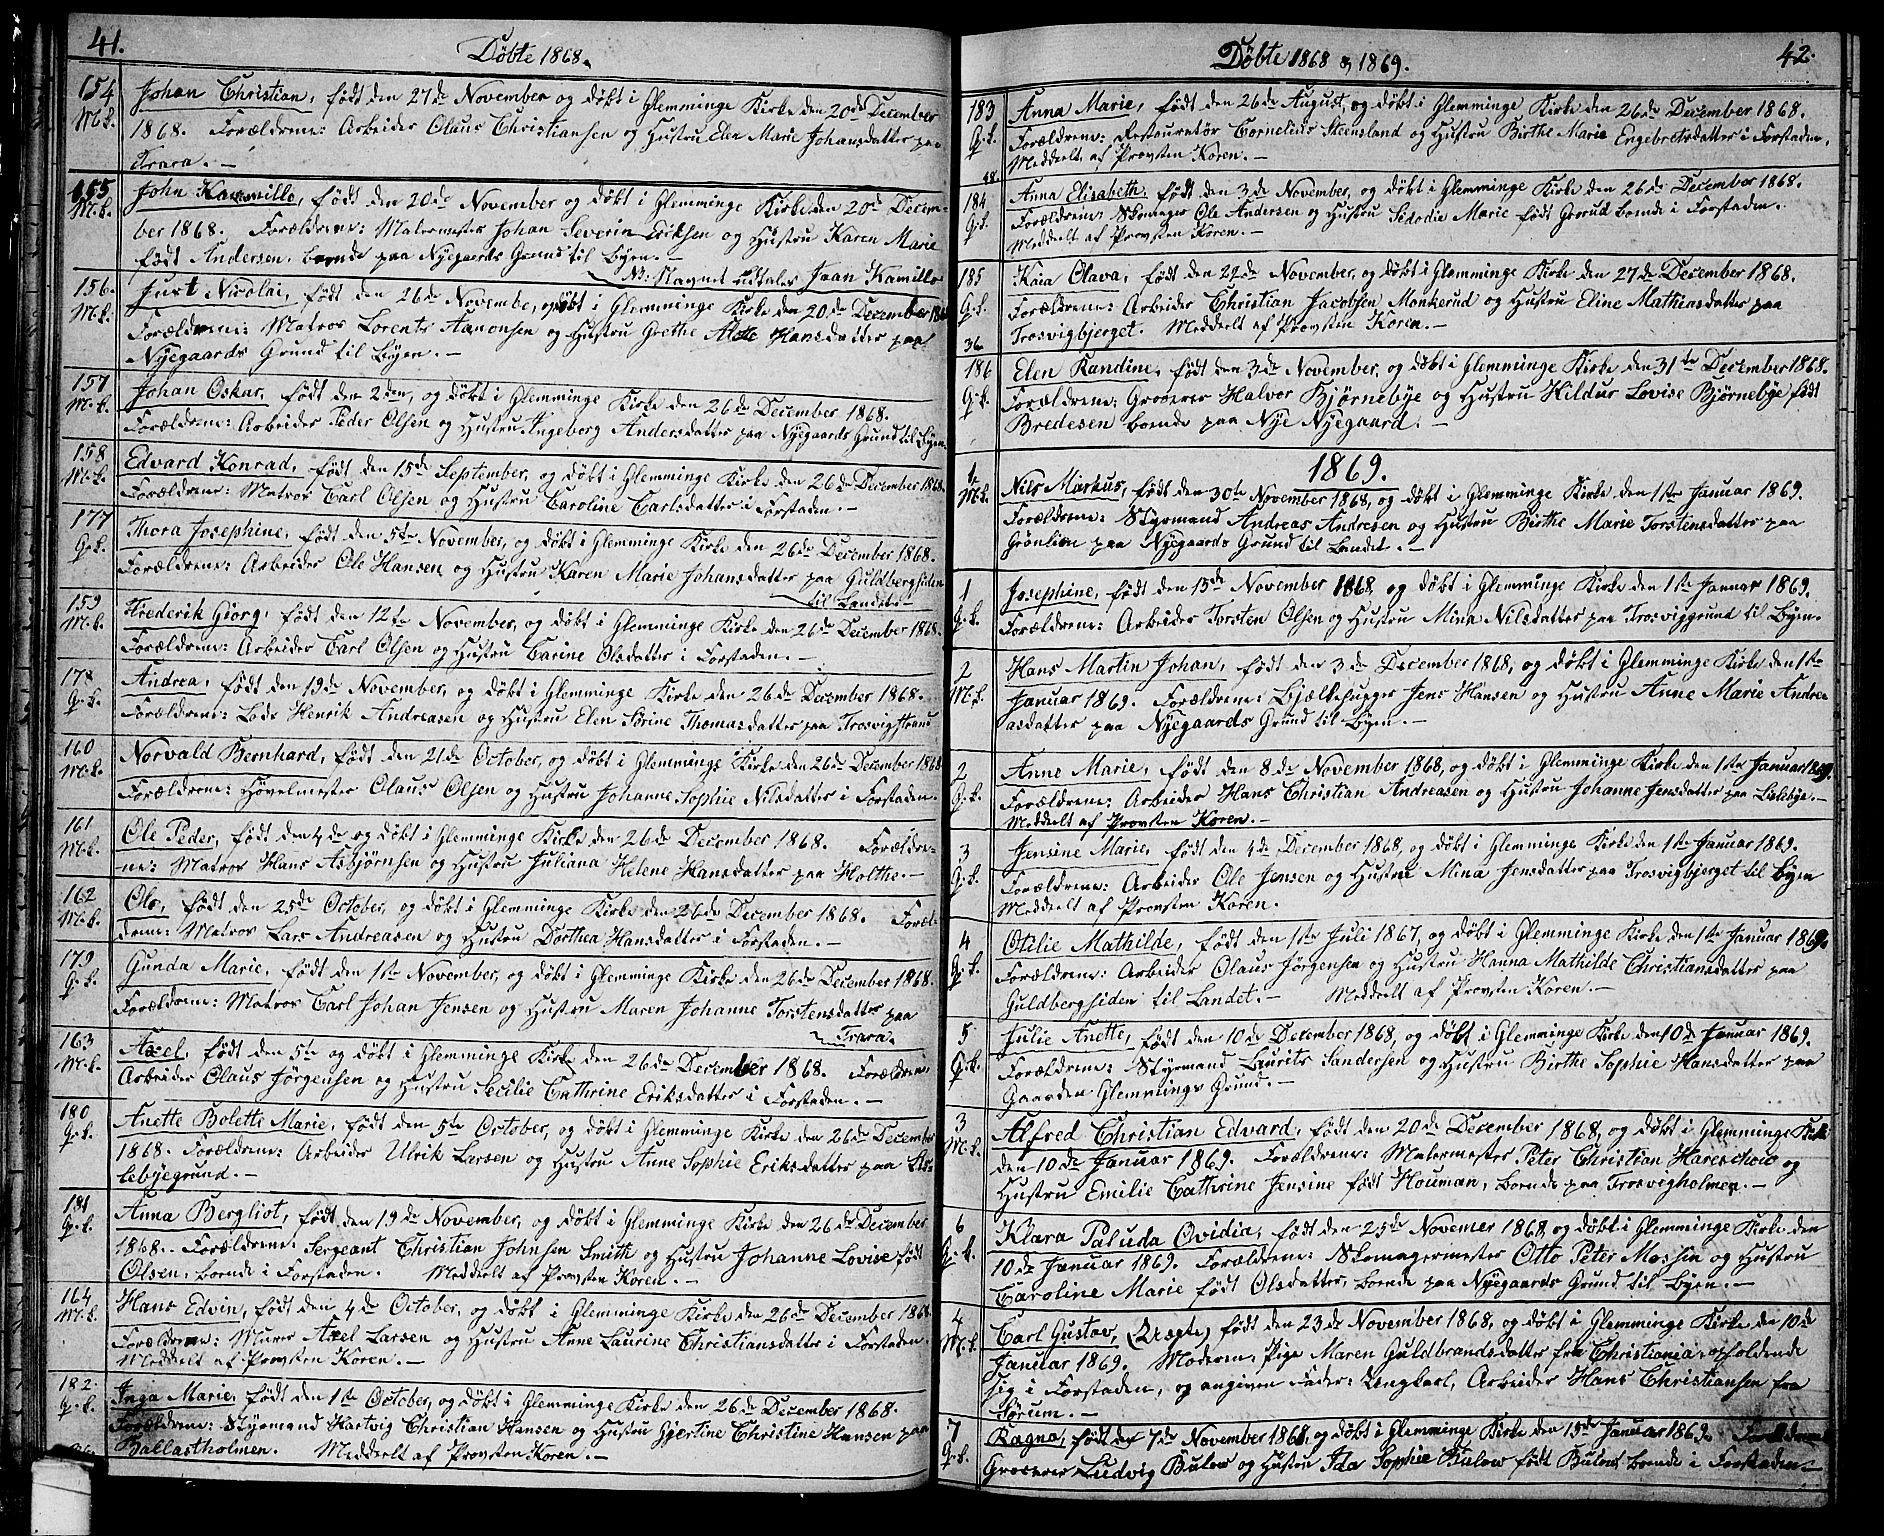 41.
Døbte 1868.
154
M.k.
Johan Christian, født den 27de November og døbt i Glemminge Kirke den 20de December
1868. Forældrene: Arbeider Olaus Christiansen og Hustru Elen Marie Johansdatter paa
Trara. -
155
M.k.
John Kammillo, født den 20de November og døbt i Glemminge Kirke den 20de Decem-
ber 1868. Forældrene: Malermester Johan Severin Eriksen og Hustru Karen Marie
født Andersen, boende paa Nyegaards Grund til Byen. -
NB: Navnet udtales Jaan Kamillo
156.
M.k.
Just Nicolai, født den 26de November, og døbt i Glemminge Kirke den 20de December 1868
Forældrene: Matros Lorents Aanonsen og Hustru Grethe Hansdatter paa
Nyegaards Grund til Byen. -
157
M.k.
Johan Oskar, født den 2den, og døbt i Glemminge Kirke den 26de December 1868.
Forældrene: Arbeider Peder Olsen og Hustru Angeborg Andersdatter paa Nyegaards Grund til Byen
158
M.k.
Edvard Konrad, født den 15de September, og døbt i Glemminge Kirke den 26de December 1868.
Forældrene: Matros Carl Olsen og Hustru Caroline Carlsdatter i Forstaden. -
177
G.k.
Thora Josephine, født den 5te November, og døbt i Glemminge Kirke den 26de December 1868.
Forældrene: Arbeider Ole Hansen og Hustru Karen Marie Johansdatter paa Guldbergsiden
til Landet. -
159
M.k.
Frederik Giorg, født den 12te November, og døbt i Glemminge Kirke den 26de December 1868.
Forældrene: Arbeider Carl Olsen og Hustru Carine Olsdatter i Forstaden. -
178
G.k.
Andrea, født den 19de November, og døbt i Glemminge Kirke den 26de December 1868.
Forældrene: Lods Henrik Andreasen og Hustru Elen Sørine Thomasdatter paa Trosvigstrand
160
M.k.
Norvald Bernhard, født den 21de October, og døbt i Glemminge Kirke den 26de December 1868
Forældrene: Høvelmester Olaus Olsen og Hustru Johanne Sophie Nilsdatter i Forstaden.
161
M.k.
Ole Peder, født den 4de og døbt i Glemminge Kirke den 26de December 1868. Forældre-
ne: Matros Hans Asbjørnsen og Hustru Juliana Helene Hansdatter paa Holthe. -
162
M.k.
Ole, født den 25de October, og døbt i Glemminge Kirke den 26de December 1868. Foræl-
drene: Matros Lars Andreasen og Hustru Dorthea Hansdatter i Forstaden. -
179
G.k.
Gunda Marie, født den 11te November, og døbt i Glemminge Kirke den 26de December 1868.
Forældrene: Matros Carl Johan Jensen og Hustru Maren Johanne Torstensdatter paa
Trara.
163
M.k.
Axel, født den 5te og døbt i Glemminge Kirke den 26de December 1868. Forældrene:
Arbeider Olaus Jørgensen og Hustru Cecilie Cathrine Eriksdatter i Forstaden. -
180
G.k.
Anette Bolette Marie, født den 5te October, og døbt i Glemminge Kirke den 26de December
1868. Forældrene: Arbeider Ulrik Larsen og Hustru Anne Sophie Eriksdatter paa Lis-
lebyegrund. -
181
G.k.
Anna Bergliot, født den 19de November, og døbt i Glemminge Kirke den 26de December
1868. Forældrene: Sergeant Christian Johnsen Smith og Hustru Johanne Lovise født
Olsen, boende i Forstaden. Meddelt af Provsten Koren. -
164
M.k.
Hans Edvin, født den 4de October, og døbt i Glemminge Kirke den 26de December 1868.
Forældrene: Murer Axel Larsen og Hustru Anne Laurine Christiansdatter i Forstaden.
Meddelt af Provsten Koren. -
182.
G.k.
Inga Marie, født den 1ste October, og døbt i Glemminge Kirke den 26de December 1868.
Forældrene: Styrmand Hartvig Christian Hansen og Hustru Gjertine Christine Hansen paa
Ballastholmen. Meddelt af Provsten Koren. -
Døbte 1868 & 1869.
42.
183
G.k.
Anna Marie, født den 26de August, og døbt i Glemminge Kirke den 26de December 1868.
Forældrene: Restauratør Cornelius Steensland og Hustru Birthe Marie Engebretsdatter i Forstaden.
Meddelt af Provsten Koren. -
48.
184
G.k.
Anna Elisabeth, født den 3de November, og døbt i Glemminge Kirke den 26de December 1868.
Forældrene: Skomager Ole Andersen og Hustru Sidodie Marie født Grorud boende i Forstaden.
Meddelt af Provsten Koren. -
185
G.k.
Kaia Olava, født den 22de November, og døbt i Glemminge Kirke den 27de December 1868.
Forældrene: Arbeider Christian Jacobsen Monkerud og Hustru Eline Mathiasdatter paa
Trosvigbjerget. Meddelt af Provsten Koren. -
36
186
G.k.
Elen Randine, født den 3de November, og døbt i Glemminge Kirke den 31te December 1868.
Forældrene: Grosserer Halvor Bjørnebye og Hustru Hildur Lovise Bjørnebye født
Bredesen boende paa Nye Nyegaard. -
1869.
1
M.k.
Nils Markus, født den 30te November 1868, og døbt i Glemminge Kirke den 1ste Januar 1869.
Forældrene: Styrmand Andreas Andresen og Hustru Birthe Marie Torstensdatter paa
Grønlien paa Nyegaards Grund til Landet. -
1
G.k.
Josephine, født den 13de November 1868, og døbt i Glemminge Kirke den 1ste Januar 1869.
Forældrene: Arbeider Torsten Olsen og Hustru Mina Nilsdatter paa Trosviggrund til Byen.
2
M.k.
Hans Martin Johan, født den 3de December 1868, og døbt i Glemminge Kirke den 1ste
Januar 1869. Forældrene: Bjælkehugger Jens Hansen og Hustru Anne Marie Andre-
asdatter paa Nyegaards Grund til Byen. -
2
G.k.
Anne Marie, født den 8de November 1868, og døbt i Glemminge Kirke den 1ste Januar 1869.
Forældrene: Arbeider Hans Christian Andreasen og Hustru Johanne Jensdatter paa Lislebye. -
Meddelt af Provsten Koren. -
3
G.k.
Jensine Marie, født den 4de December 1868, og døbt i Glemminge Kirke den 1ste Januar 1869.
Forældrene: Arbeider Ole Jensen og Hustru Mina Jensdatter paa Trosvigbjerget til Byen
Meddelt af Provsten Koren.
4
G.k.
Otilie Mathilde, født den 1ste Juli 1867, og døbt i Glemminge Kirke den 1ste Januar 1869.
Forældrene: Arbeider Olaus Jørgensen og Hustru Hanna Mathilde Christiansdatter paa
Guldbergsiden til Landet. - Meddelt af Provsten Koren. -
5
G.k.
Julie Anette, født den 10de December 1868, og døbt i Glemminge Kirke den 10de Januar 1869.
Forældrene: Styrmand Laurits Sandersen og Hustru Birthe Sophie Hansdatter paa
Gaarden Glemminge Grund. -
3
M.k.
Alfred Christian Edvard, født den 20de December 1868, og døbt i Glemminge Kirke
den 10de Januar 1869. Forældrene: Malermester Peter Christian Hareschow og
Hustru Emilie Cathrine Jensine født Houman, boende paa Trosvigholmen. -
6
G.k.
Klara Paluda Ovidia, født den 25de Novemer 1868, og døbt i Glemminge Kirke den
10de Januar 1869. Forældrene: Skomagermester Otto Peter Mossin og Hustru
Caroline Marie født Olsdatter, boende paa Nyegaards Grund til Byen. -
4
M.k.
Carl Gustav, (Uægte) født den 23de November 1868, og døbt i Glemminge Kirke den 10de
Januar 1869. Moderen: Pige Maren Guldbrandsdatter fra Christiania, opholdende
sig i Forstaden, og angiven Fader: Ungkarl, Arbeider Hans Christiansen fra
Sørum. -
7
G.k.
Ragna, født den 7de November 1868, og døbt i Glemminge Kirke den 15de Januar 1869. Forældrene:
Grosserer Ludvig Bulow og Hustru Ida Sophie Bulow født Bulow boende i Forstaden. -